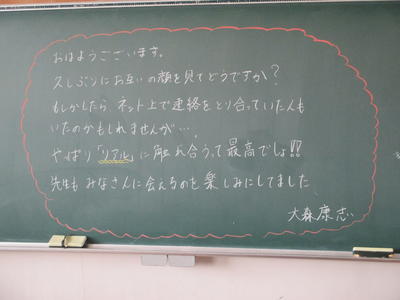 おはようございます。
久しぶりにお互いの顔を見てどうですか?
もしかしたら、ネット上で連絡をとり合っていた人も
いたのかもしれませんが…、
やっぱり「リアル」に触れ合うって最高でしょ!!
先生もみなさんに会えるのを楽しみにしてました
大森康志